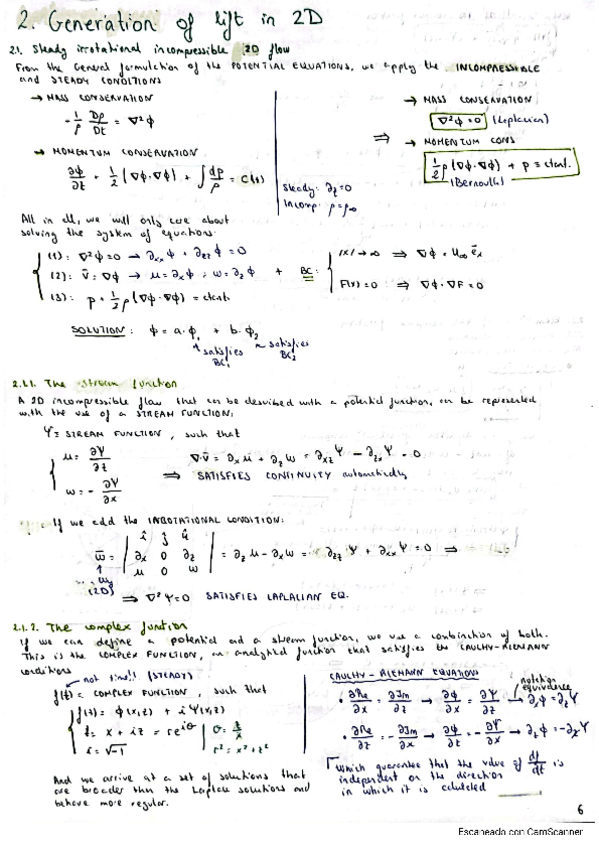 2. Generation of lift in 2D
2.1. Steady irrotational incompressible 2D flow
From the General formulation of the POTENTIAL EQUATIONS, we apply the INCOMPRESSIBLE
and STEADY CONDITIONS
→ MASS CONSERVATION
-1/ρ Dρ/Dt = ∇²φ
→ MOMENTUM CONSERVATION
∂φ/∂t + 1/2 (∇φ·∇φ) + ∫dp/ρ = C(t)
Steady: ∂t = 0
Incomp: ρ = ρ∞
⇒
→ MASS CONSERVATION
∇²φ = 0 (Laplacian)
→ MOMENTUM CONS
1/2 ρ (∇φ·∇φ) + p = ctant.
(Bernoulli)
All in all, we will only care about
solving the system of equations:
(1): ∇²φ = 0 → ∂xx φ + ∂zz φ = 0
(2): v̄ = ∇φ → u = ∂x φ ; w = ∂z φ
(3): p + 1/2 ρ (∇φ·∇φ) = ctant.
+ BC:
|x| → ∞ ⇒ ∇φ = U∞ e̅x
F(x) = 0 ⇒ ∇φ · ∇F = 0
SOLUTION: φ = a·φ1 + b·φ2
satisfies BC1
satisfies BC2
2.1.1. The stream function
A 2D incompressible flow that can be described with a potential function, can be represented
with the use of a STREAM FUNCTION:
Ψ ≡ STREAM FUNCTION, such that
u = ∂Ψ/∂z
w = - ∂Ψ/∂x
∇·v̄ = ∂x u + ∂z w = ∂xz Ψ - ∂zx Ψ = 0
⇒ SATISFIES CONTINUITY automatically
If we add the IRROTATIONAL CONDITION:
ω̄ = | i j k ; ∂x 0 ∂z ; u 0 w | = ∂z u - ∂x w = ∂zz Ψ + ∂xx Ψ = 0 ⇒
(2D)
⇒ ∇²Ψ = 0 SATISFIES LAPLALIAN EQ.
2.1.2. The complex function
If we can define a potential and a stream function, we use a combination of both.
This is the COMPLEX FUNCTION, an analytical function that satisfies the CAUCHY-RIEMANN
conditions
not time!! (STEADY)
f(t) = COMPLEX FUNCTION, such that
f(t) = φ(x,z) + iΨ(x,z)
t = x + iz = re^iθ
i = √-1
θ = z/x
r² = x² + z²
And we arrive at a set of solutions that
are broader than the Laplace solutions and
behave more regular.
CAUCHY-RIEMANN EQUATIONS
notation equivalence
· ∂Re/∂x = ∂Im/∂z → ∂φ/∂x = ∂Ψ/∂z → ∂x φ = ∂z Ψ
· ∂Re/∂z = - ∂Im/∂x → ∂φ/∂z = - ∂Ψ/∂x → ∂z φ = -∂x Ψ
Which guarantee that the value of df/dt is
independent on the direction
in which it is calculated
6
Escaneado con CamScanner